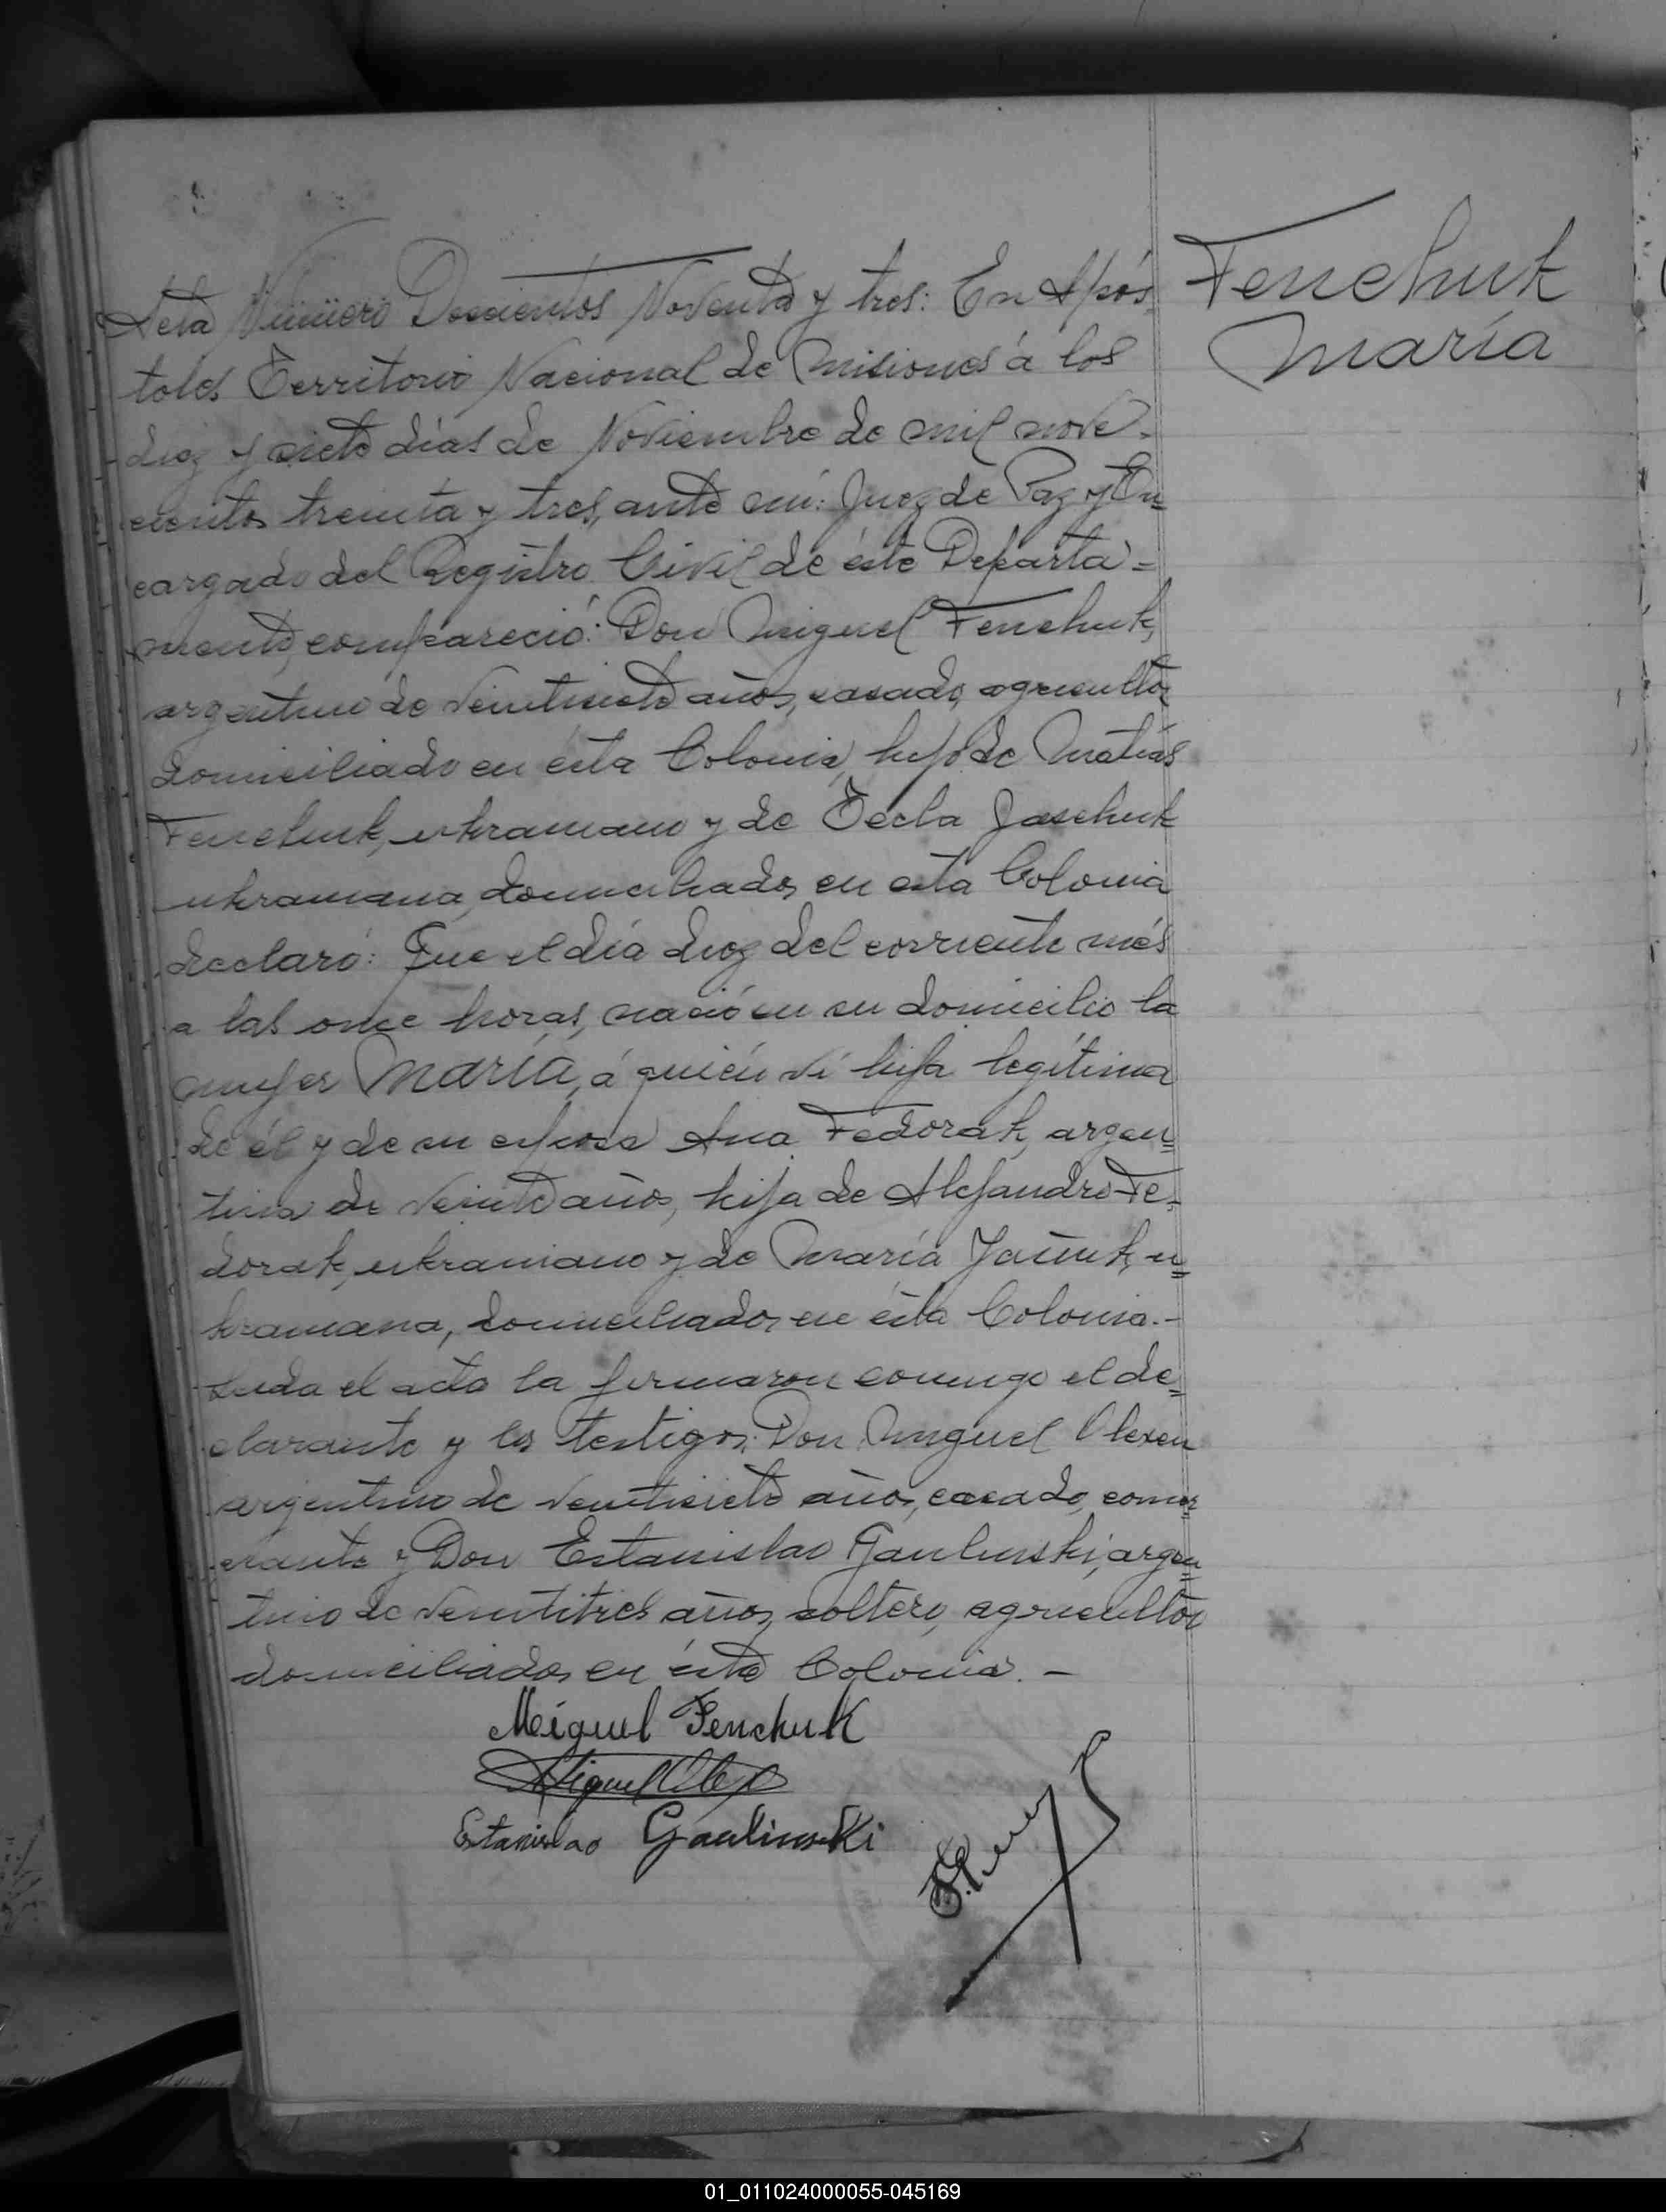 Acta Número Doscientos Noventa y tres: En Após-
toles Territorio Nacional de Misiones á los
diez y siete días de Noviembre de mil nove-
cientos treinta y tres, ante mí: Juez de Paz y En=
cargado del Registro Civil de éste Departa=
mento, compareció: Don Miguel Fenchuk,
argentino de veintisiete años, casado, agricultor
domiciliado en ésta Colonia, hijo de Matías
Fenchuk, ukraniano y de Tecla Jaschuk
ukraniana, domiciliados en esta Colonia
declaró: Que el día diez del corriente més
a las once horas, nació en su domicilio la
mujer María, á quién ví hija legítima
de él y de su esposa Ana Fedorak, argen=
tina de veinte años, hija de Alejandro Fe-
dorak, ukraniano y de María Jañuk, u=
kraniana, domiciliados en ésta Colonia.-
Leida el acta la firmaron conmigo el de=
clarante y los testigos: Don Miguel Olexen
argentino de veintisiete años, casado, comer=
ciante y Don Estanislao Gaulinski, argen=
tino de veintitres años, soltero, agricultor
domiciliados en ésta Colonia. -
Fenchuk
María
Miguel Fenchuk
Miguel
Estanislao Gaulinski
01_011024000055-045169